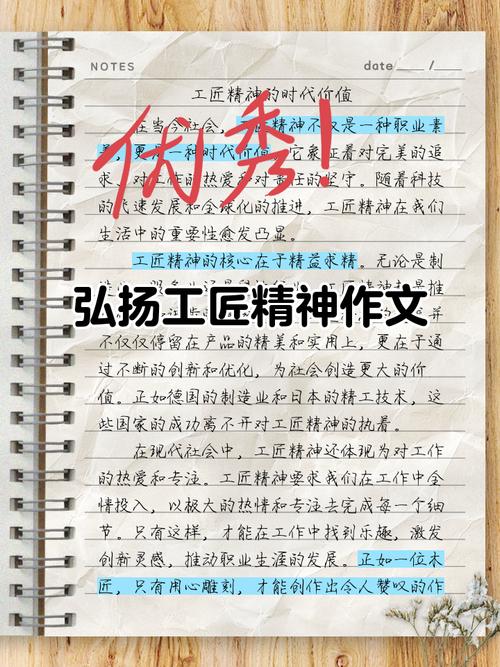 NOTES
date ___ / ___
工匠精神的时代价值
优秀!
在当今社会，工匠精神不仅是一种职业素
更是一种时代价值 它象征着对完美的追
求、对工作的热爱和对责任的坚守。随着科技
的飞速发展和全球化的推进，工匠精神在我们
生活中的重要性愈发凸显。
工匠精神的核心在于精益求精。无论是制
弘扬工匠精神作文
不仅仅停留在产品的精美和实用上，更在于通
过不断的创新和优化，为社会创造更大的价
值。正如德国的制造业和日本的精工技术，这
些国家的成功离不开对工匠精神的执着。
在现代社会中，工匠精神还体现为对工作
的热爱和专注。工匠精神要求我们在工作中全
情投入，以极大的热情和专注去完成每一个细
节。只有这样，才能在工作中找到乐趣，激发
创新灵感，推动职业生涯的发展。正如一位木
匠，只有用心雕刻，才能创作出令人赞叹的作